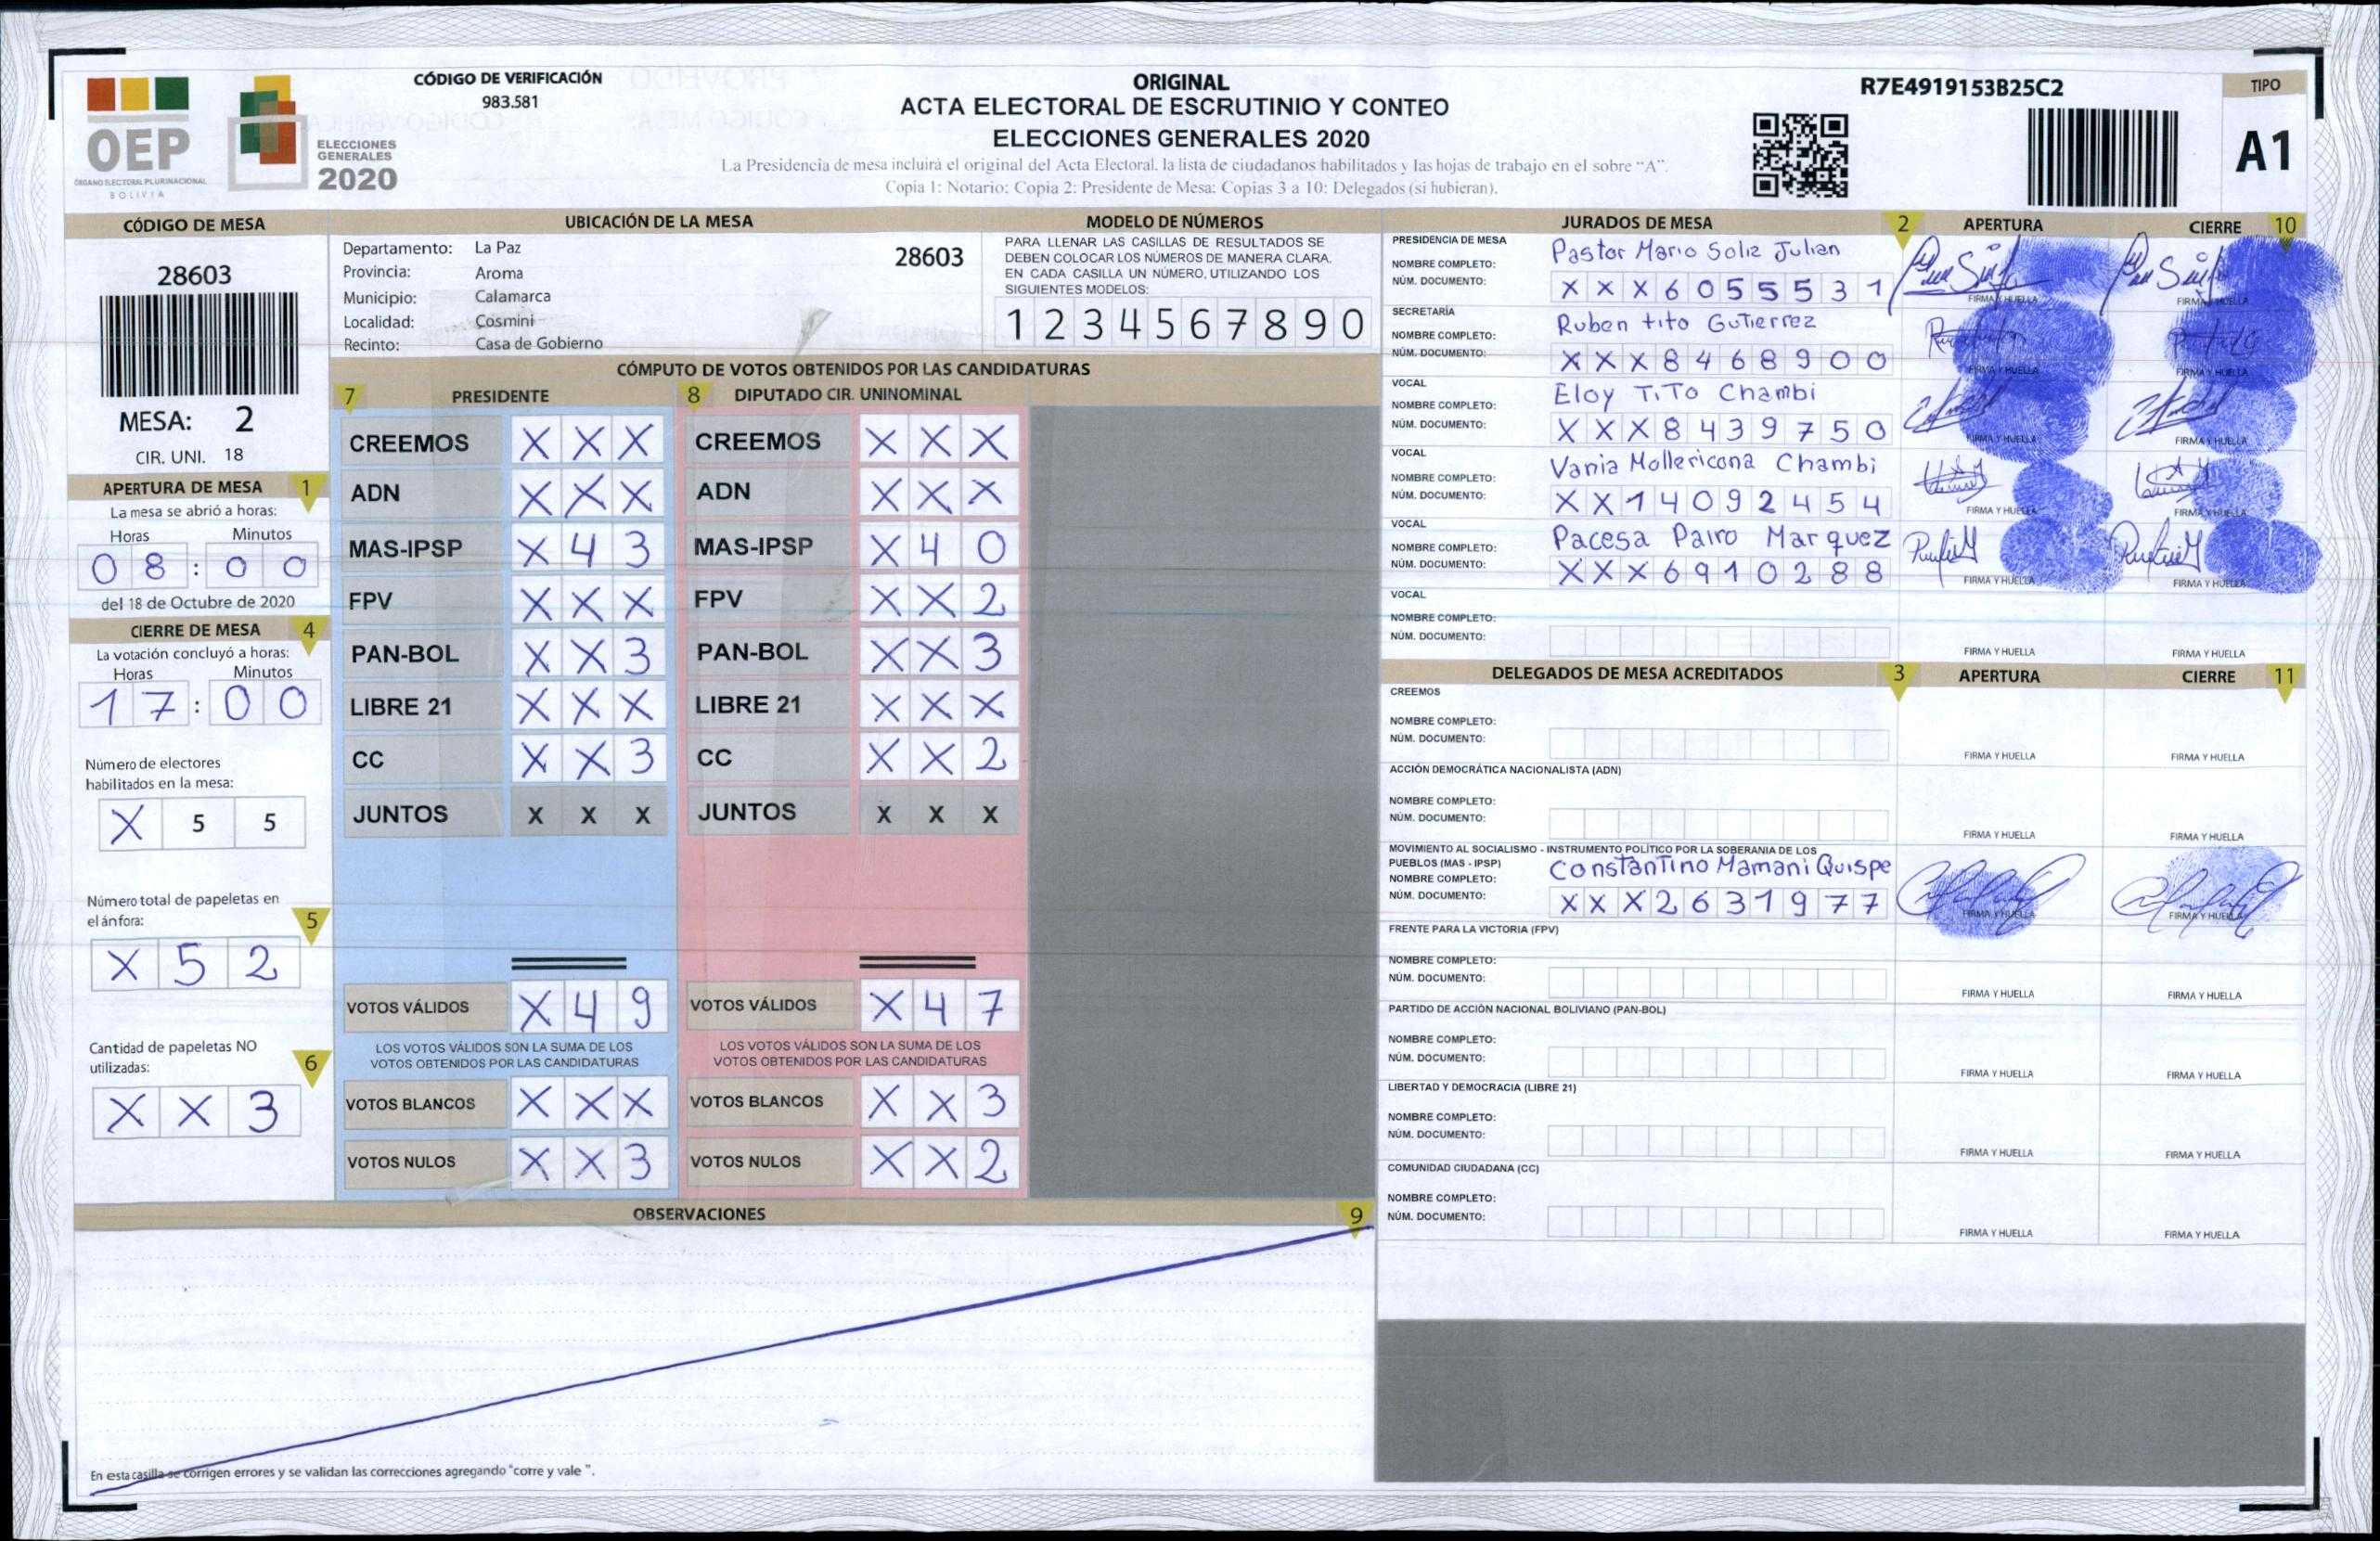 OEP
ÓRGANO ELECTORAL PLURINACIONAL
BOLIVIA
ELECCIONES
GENERALES
2020
CÓDIGO DE VERIFICACIÓN
983.581
ORIGINAL
ACTA ELECTORAL DE ESCRUTINIO Y CONTEO
ELECCIONES GENERALES 2020
La Presidencia de mesa incluirá el original del Acta Electoral, la lista de ciudadanos habilitados y las hojas de trabajo en el sobre "A".
Copia 1: Notario: Copia 2: Presidente de Mesa: Copias 3 a 10: Delegados (si hubieran).
R7E4919153B25C2
TIPO
A1
CÓDIGO DE MESA
28603
MESA: 2
CIR. UNI. 18
APERTURA DE MESA 1
La mesa se abrió a horas:
Horas Minutos
0 8 : 0 0
del 18 de Octubre de 2020
CIERRE DE MESA 4
La votación concluyó a horas:
Horas Minutos
1 7 : 0 0
Número de electores
habilitados en la mesa:
X 5 5
Número total de papeletas en
el ánfora: 5
X 5 2
Cantidad de papeletas NO
utilizadas: 6
X X 3
UBICACIÓN DE LA MESA
Departamento: La Paz 28603
Provincia: Aroma
Municipio: Calamarca
Localidad: Cosmini
Recinto: Casa de Gobierno
MODELO DE NÚMEROS
PARA LLENAR LAS CASILLAS DE RESULTADOS SE
DEBEN COLOCAR LOS NÚMEROS DE MANERA CLARA.
EN CADA CASILLA UN NÚMERO, UTILIZANDO LOS
SIGUIENTES MODELOS:
1 2 3 4 5 6 7 8 9 0
CÓMPUTO DE VOTOS OBTENIDOS POR LAS CANDIDATURAS
7 PRESIDENTE 8 DIPUTADO CIR. UNINOMINAL
CREEMOS X X X CREEMOS X X X
ADN X X X ADN X X X
MAS-IPSP X 4 3 MAS-IPSP X 4 0
FPV X X X FPV X X 2
PAN-BOL X X 3 PAN-BOL X X 3
LIBRE 21 X X X LIBRE 21 X X X
CC X X 3 CC X X 2
JUNTOS X X X JUNTOS X X X
VOTOS VÁLIDOS X 4 9 VOTOS VÁLIDOS X 4 7
LOS VOTOS VÁLIDOS SON LA SUMA DE LOS LOS VOTOS VÁLIDOS SON LA SUMA DE LOS
VOTOS OBTENIDOS POR LAS CANDIDATURAS VOTOS OBTENIDOS POR LAS CANDIDATURAS
VOTOS BLANCOS X X X VOTOS BLANCOS X X 3
VOTOS NULOS X X 3 VOTOS NULOS X X 2
OBSERVACIONES 9
En esta casilla se corrigen errores y se validan las correcciones agregando "corre y vale ".
JURADOS DE MESA 2 APERTURA CIERRE 10
PRESIDENCIA DE MESA
NOMBRE COMPLETO: Pastor Mario Soliz Julian
NÚM. DOCUMENTO: X X X 6 0 5 5 5 3 1
FIRMA Y HUELLA FIRMA Y HUELLA
SECRETARÍA
NOMBRE COMPLETO: Ruben tito Gutierrez
NÚM. DOCUMENTO: X X X 8 4 6 8 9 0 0
FIRMA Y HUELLA FIRMA Y HUELLA
VOCAL
NOMBRE COMPLETO: Eloy TiTo Chambi
NÚM. DOCUMENTO: X X X 8 4 3 9 7 5 0
FIRMA Y HUELLA FIRMA Y HUELLA
VOCAL
NOMBRE COMPLETO: Vania Mollericona Chambi
NÚM. DOCUMENTO: X X 1 4 0 9 2 4 5 4
FIRMA Y HUELLA FIRMA Y HUELLA
VOCAL
NOMBRE COMPLETO: Pacesa Pairo Marquez
NÚM. DOCUMENTO: X X X 6 9 1 0 2 8 8
FIRMA Y HUELLA FIRMA Y HUELLA
VOCAL
NOMBRE COMPLETO:
NÚM. DOCUMENTO:
FIRMA Y HUELLA FIRMA Y HUELLA
DELEGADOS DE MESA ACREDITADOS 3 APERTURA CIERRE 11
CREEMOS
NOMBRE COMPLETO:
NÚM. DOCUMENTO:
FIRMA Y HUELLA FIRMA Y HUELLA
ACCIÓN DEMOCRÁTICA NACIONALISTA (ADN)
NOMBRE COMPLETO:
NÚM. DOCUMENTO:
FIRMA Y HUELLA FIRMA Y HUELLA
MOVIMIENTO AL SOCIALISMO - INSTRUMENTO POLÍTICO POR LA SOBERANIA DE LOS
PUEBLOS (MAS - IPSP)
NOMBRE COMPLETO: Constantino Mamani Quispe
NÚM. DOCUMENTO: X X X 2 6 3 1 9 7 7
FIRMA Y HUELLA FIRMA Y HUELLA
FRENTE PARA LA VICTORIA (FPV)
NOMBRE COMPLETO:
NÚM. DOCUMENTO:
FIRMA Y HUELLA FIRMA Y HUELLA
PARTIDO DE ACCIÓN NACIONAL BOLIVIANO (PAN-BOL)
NOMBRE COMPLETO:
NÚM. DOCUMENTO:
FIRMA Y HUELLA FIRMA Y HUELLA
LIBERTAD Y DEMOCRACIA (LIBRE 21)
NOMBRE COMPLETO:
NÚM. DOCUMENTO:
FIRMA Y HUELLA FIRMA Y HUELLA
COMUNIDAD CIUDADANA (CC)
NOMBRE COMPLETO:
NÚM. DOCUMENTO:
FIRMA Y HUELLA FIRMA Y HUELLA